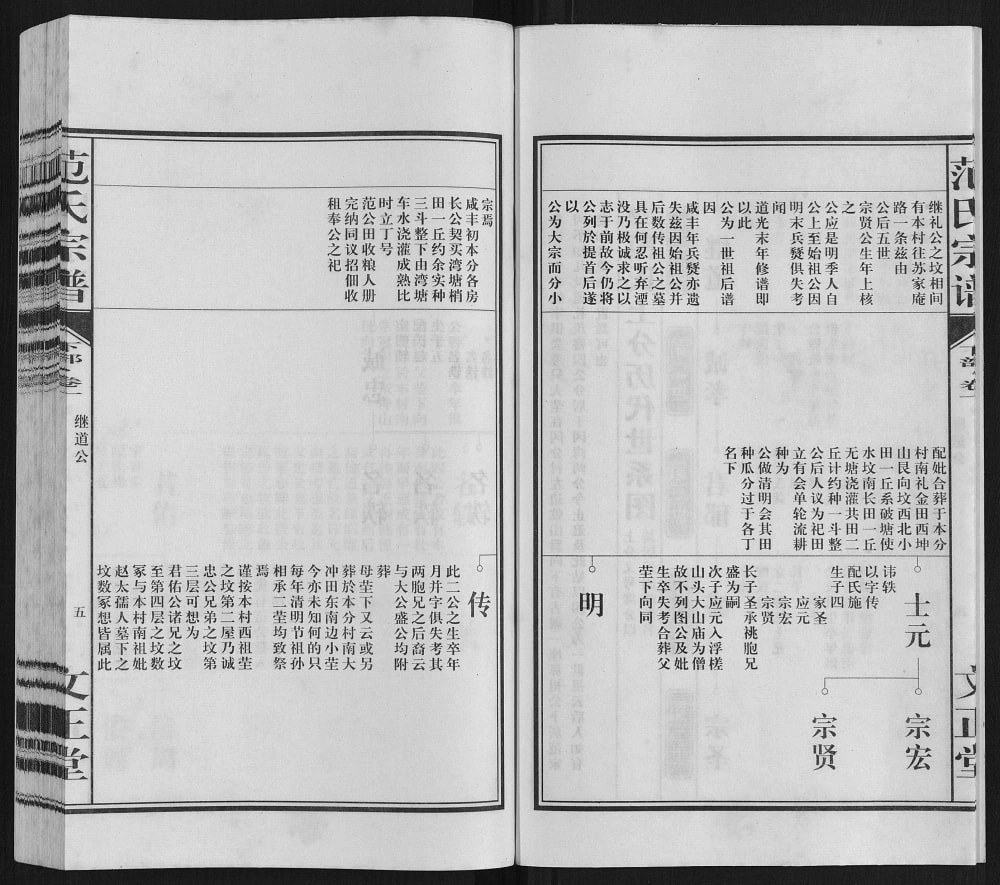 范氏宗谱
下部卷一
文正堂
继礼公之坟相间
有本村往苏家庵
路一条兹由
公后五世
宗贤公生年上核
之
公应是明季人自
公上至始祖公因
明末兵燹俱失考
闻
道光末年修谱即
以此
公为一世祖后谱
因
咸丰年兵燹亦遗
失兹因始祖公并
后数传祖公之墓
具在何忍听弃湮
没乃极诚求之以
志于前故今仍将
公列於提首后遂
以
公为大宗而分小
配妣合葬于本分
村南礼金田西坤
山艮向坟西北小
田一丘系破塘使
水坟南长田一丘
无塘浇灌共田二
丘计约种一斗整
公后人议为祀田
立有会单轮流耕
种为
公做清明会其田
种瓜分过于各丁
名下
士元
讳轶
以字传
配氏施
生子四
家圣
应元
宗宏
宗贤
长子圣承祧胞兄
盛为嗣
次子应元入浮槎
山头大山庙为僧
故不列图公及妣
生卒失考合葬父
茔下向同
宗宏
宗贤
明
宗焉
咸丰初本分各房
长公契买湾塘梢
田一丘约余实种
三斗整下由湾塘
车水浇灌成熟比
时立丁号
范公田收粮人册
完纳同议招佃收
租奉公之祀
传
此二公之生卒年
月并字俱失考其
两胞兄之后裔云
与大公盛公均附
葬
母茔下又云或另
葬於本分村南大
冲田东南边小茔
今亦未知何的只
每年清明节祖孙
相承二茔均致祭
焉
谨按本村西祖茔
之坟第二屋乃诚
忠公兄弟之坟第
三层可想为
君佑公诸兄之坟
至第四层之坟数
冢与本村南祖妣
赵太孺人墓下之
坟数冢想皆属此
范氏宗谱
下部卷一
继道公
五
文正堂